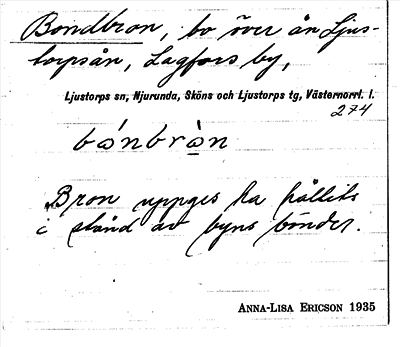 Bondbron, bo över ån Ljus-
torpsån, Lagfors by,
Ljustorps sn, Njurunda, Sköns och Ljustorps tg, Västernorrl. l.
274
bónbròn
Bron uppges ha hållits
i stånd av byns bönder.
ANNA-LISA ERICSON 1935